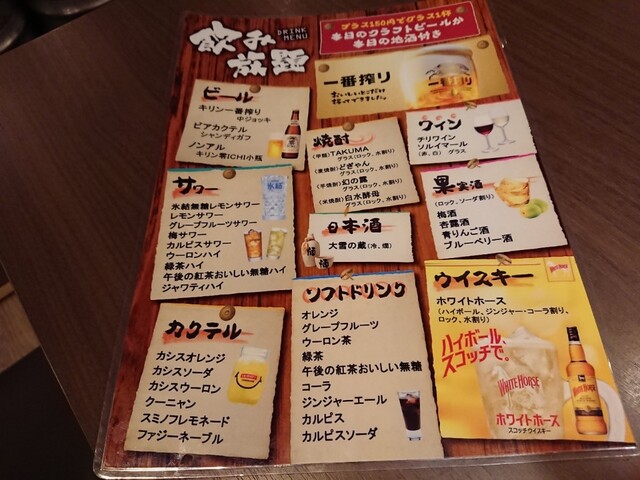 飲み放題
DRINK MENU
プラス150円でグラス1杯
本日のクラフトビールか
本日の地酒付き
一番搾り
おいしいとこだけ
搾ってできました。
一番搾り
ビール
キリン一番搾り
中ジョッキ
ビアカクテル
シャンディガフ
ノンアル
キリン零ICHI小瓶
焼酎
(甲類)TAKUMA
グラス(ロック、水割り)
(麦焼酎)どぎゃん
グラス(ロック、水割り)
(芋焼酎)幻の露
グラス(ロック、水割り)
(米焼酎)白水酵母
グラス(ロック、水割り)
ワイン
チリワイン
ソルイマール
(赤、白) グラス
サワー
氷結無糖レモンサワー
レモンサワー
グレープフルーツサワー
梅サワー
カルピスサワー
ウーロンハイ
緑茶ハイ
午後の紅茶おいしい無糖ハイ
ジャワティハイ
日本酒
大雪の蔵(冷、燗)
果実酒
(ロック、ソーダ割り)
梅酒
杏露酒
青りんご酒
ブルーベリー酒
カクテル
カシスオレンジ
カシスソーダ
カシスウーロン
クーニャン
スミノフレモネード
ファジーネーブル
ソフトドリンク
オレンジ
グレープフルーツ
ウーロン茶
緑茶
午後の紅茶おいしい無糖
コーラ
ジンジャーエール
カルピス
カルピスソーダ
ウイスキー
ホワイトホース
(ハイボール、ジンジャー・コーラ割り、
ロック、水割り)
ハイボール、
スコッチで。
WHITE HORSE
ホワイトホース
スコッチウイスキー